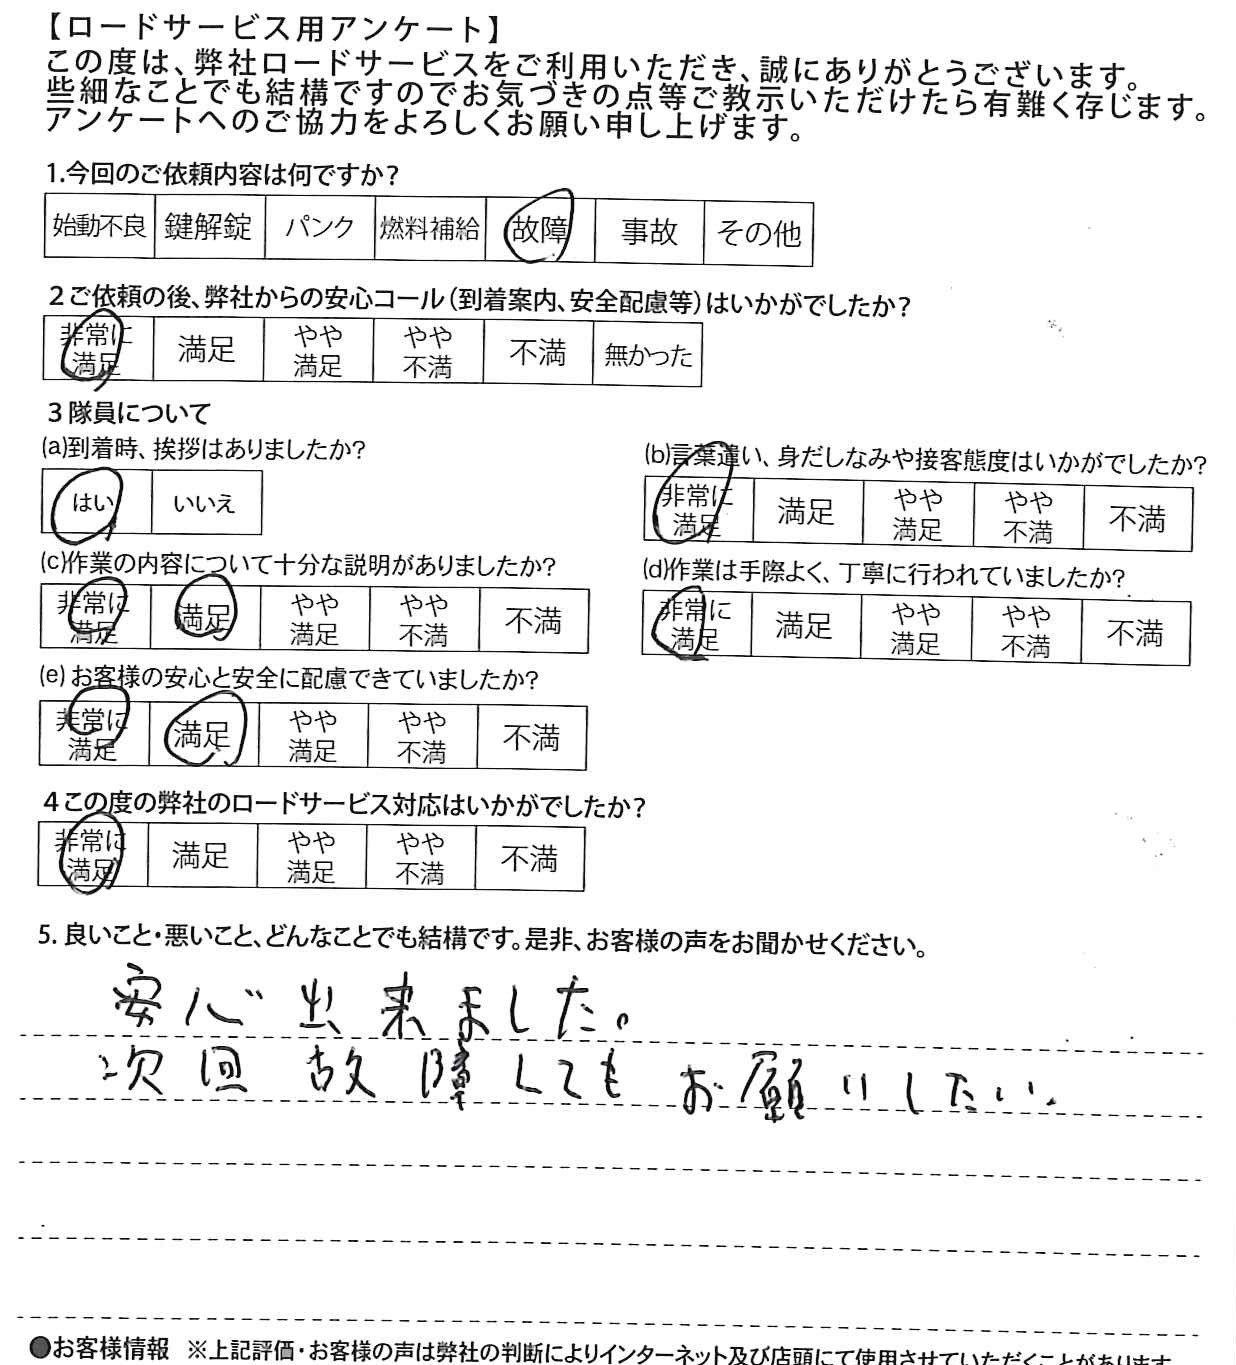 【ロードサービス用アンケート】
この度は、弊社ロードサービスをご利用いただき、誠にありがとうございます。
些細なことでも結構ですのでお気づきの点等ご教示いただけたら有難く存じます。
アンケートへのご協力をよろしくお願い申し上げます。
1.今回のご依頼内容は何ですか?
始動不良 鍵解錠 パンク 燃料補給 故障 事故 その他
2ご依頼の後、弊社からの安心コール(到着案内、安全配慮等)はいかがでしたか?
非常に満足 満足 やや満足 やや不満 不満 無かった
3隊員について
(a)到着時、挨拶はありましたか?
はい いいえ
(b)言葉遣い、身だしなみや接客態度はいかがでしたか?
非常に満足 満足 やや満足 やや不満 不満
(c)作業の内容について十分な説明がありましたか?
非常に満足 満足 やや満足 やや不満 不満
(d)作業は手際よく、丁寧に行われていましたか?
非常に満足 満足 やや満足 やや不満 不満
(e)お客様の安心と安全に配慮できていましたか?
非常に満足 満足 やや満足 やや不満 不満
4この度の弊社のロードサービス対応はいかがでしたか?
非常に満足 満足 やや満足 やや不満 不満
5.良いこと・悪いこと、どんなことでも結構です。是非、お客様の声をお聞かせください。
安心出来ました。
次回故障してもお願いしたい.
●お客様情報 ※上記評価・お客様の声は弊社の判断によりインターネット及び店頭にて使用させていただくことがあります